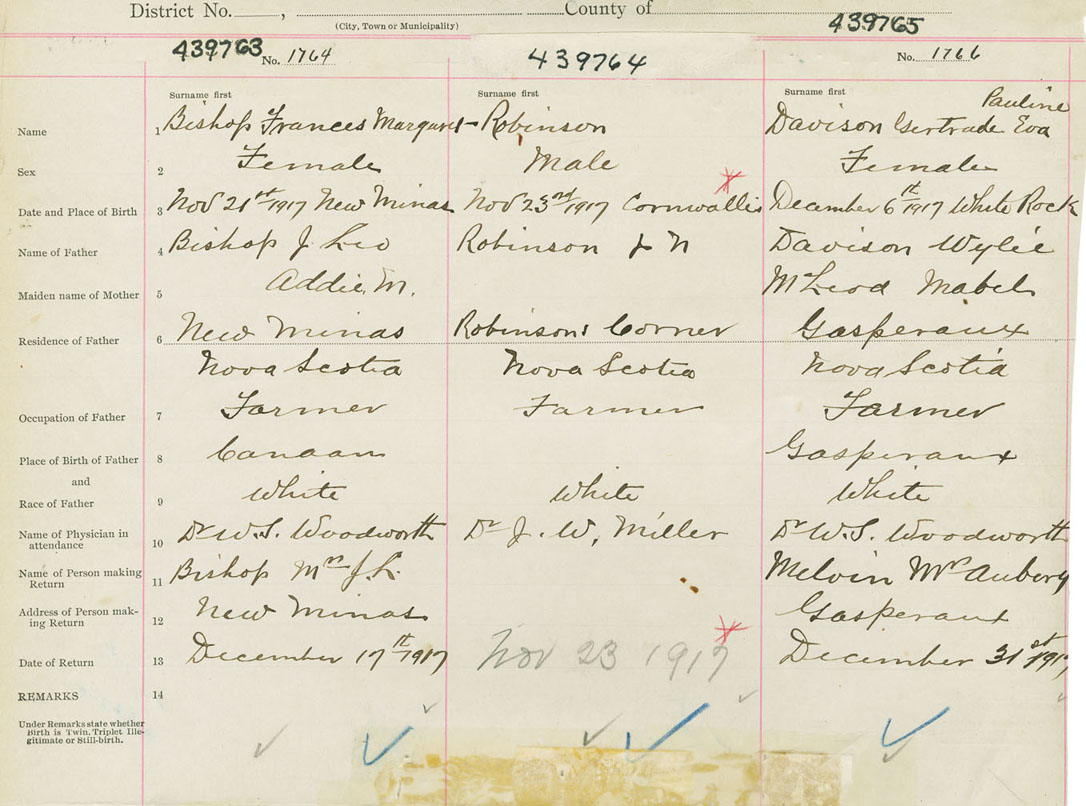 District No. , County of
(City, Town or Municipality)
439763 No. 1764 439764 439765 No. 1766
Surname first Surname first Surname first
Pauline
Name 1 Bishop Frances Margaret Robinson Davison Gertrude Eva
Sex 2 Female Male Female
Date and Place of Birth 3 Nov 21st 1917 New Minas Nov 23rd 1917 Cornwallis December 6th 1917 White Rock
Name of Father 4 Bishop J. Leo Robinson J N Davison Wylie
Maiden name of Mother 5 Addie M. McLeod Mabel
Residence of Father 6 New Minas Robinsons Corner Gasperaux
Nova Scotia Nova Scotia Nova Scotia
Occupation of Father 7 Farmer Farmer Farmer
Place of Birth of Father 8 Canaan Gasperaux
and
Race of Father 9 White White White
Name of Physician in
attendance 10 Dr W. S. Woodworth Dr J. W. Miller Dr W. S. Woodworth
Name of Person making
Return 11 Bishop Mrs J. L. Melvin Mrs Aubery
Address of Person mak-
ing Return 12 New Minas Gasperaux
Date of Return 13 December 17th 1917 Nov 23 1917 December 31st 1917
REMARKS 14
Under Remarks state whether
Birth is Twin, Triplet Ille-
gitimate or Still-birth.